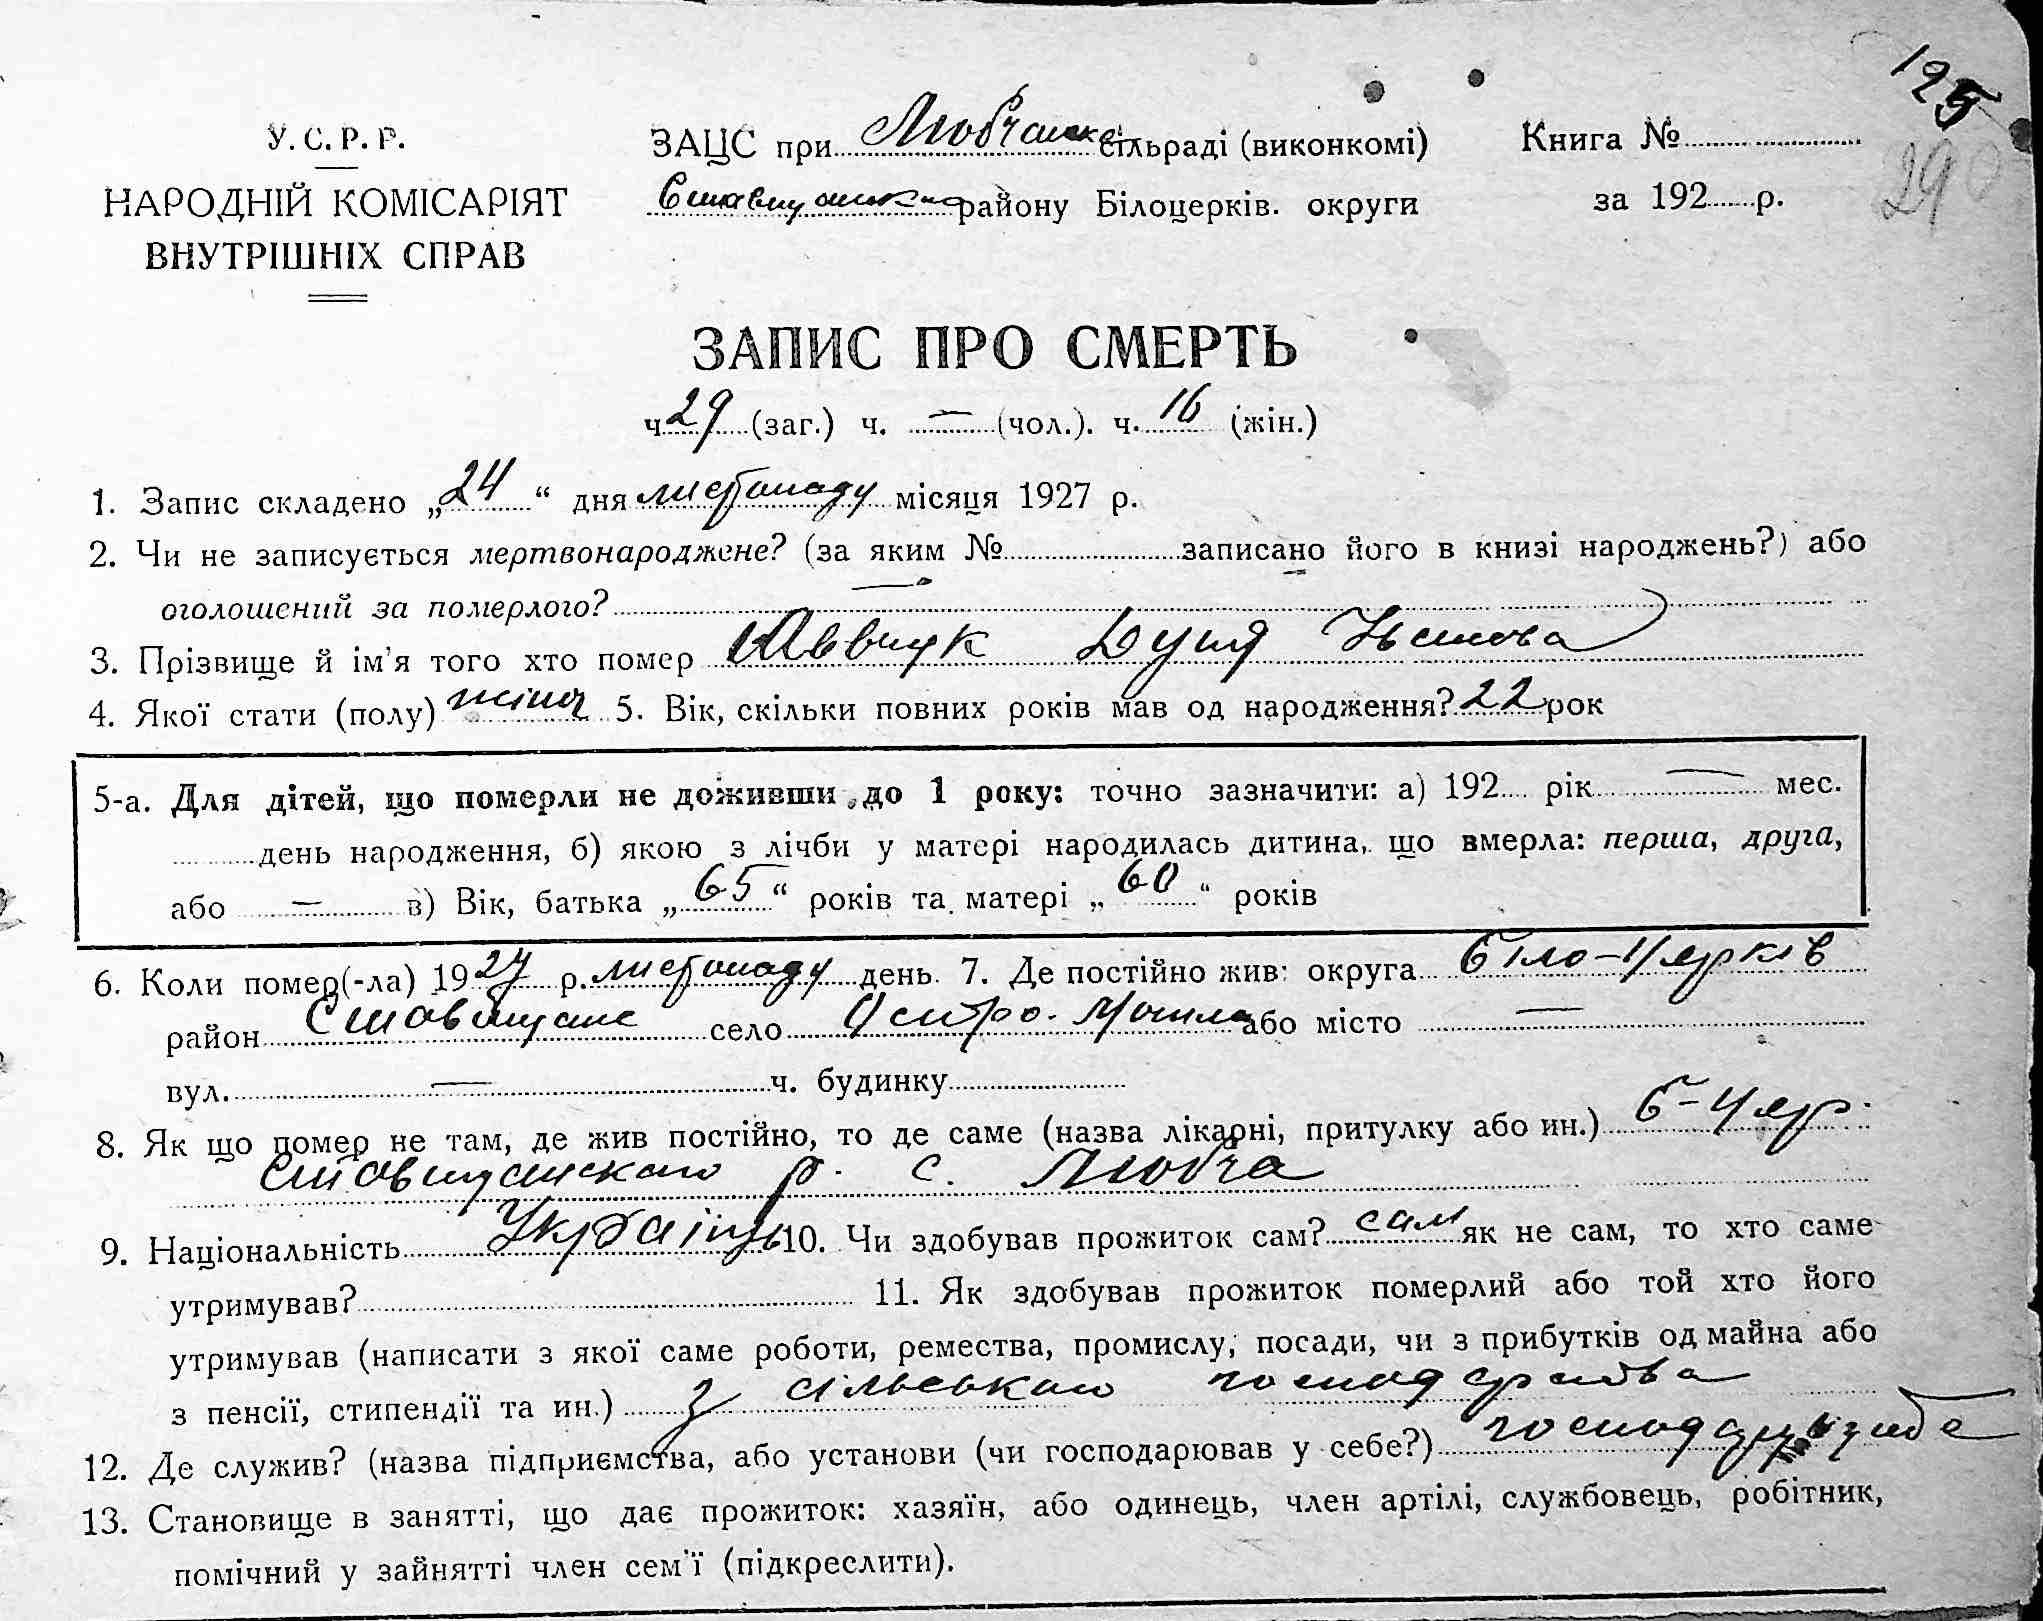 125
290
У. С. Р. Р.
НАРОДНІЙ КОМІСАРІЯТ
ВНУТРІШНІХ СПРАВ
ЗАЦС при Любчанск сільраді (виконкомі)
району Білоцерків. округи
Книга №
за 192 р.
ЗАПИС ПРО СМЕРТЬ
ч 29 (заг.) ч. — (чол.). ч. 16 (жін.)
1. Запис складено „24“ дня листопаду місяця 1927 р.
2. Чи не записується мертвонароджене? (за яким № записано його в книзі народжень?) або
оголошений за померлого? —
3. Прізвище й ім'я того хто помер
4. Якої стати (полу) жіноч 5. Вік, скільки повних років мав од народження? 22 рок
5-а. Для дітей, що померли не доживши до 1 року: точно зазначити: а) 192 рік — мес.
день народження, б) якою з лічби у матері народилась дитина, що вмерла: перша, друга,
або — в) Вік, батька „65“ років та матері „60“ років
6. Коли помер(-ла) 1927 р. листопаду день. 7. Де постійно жив: округа Біло-Церків
район Ставищанс село Остро-Могила або місто —
вул. — ч. будинку
8. Як що помер не там, де жив постійно, то де саме (назва лікарні, притулку або ин.) Б-Цер.
Ставищанского р. с. Любча
9. Національність Українць 10. Чи здобував прожиток сам? сам як не сам, то хто саме
утримував? 11. Як здобував прожиток померлий або той хто його
утримував (написати з якої саме роботи, ремества, промислу, посади, чи з прибутків од майна або
з пенсії, стипендії та ин.) з сільського господарства
12. Де служив? (назва підприємства, або установи (чи господарював у себе?)
13. Становище в занятті, що дає прожиток: хазяїн, або одинець, член артілі, службовець, робітник,
помічний у зайнятті член сем'ї (підкреслити).